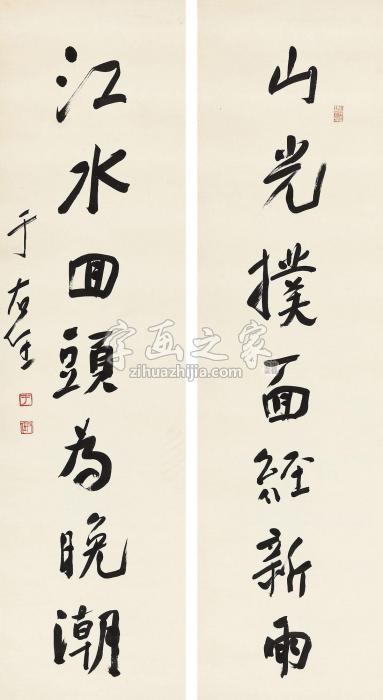 山光撲面經新雨
江水回頭為晚潮
于右任
字画之家
zihuazhijia.com